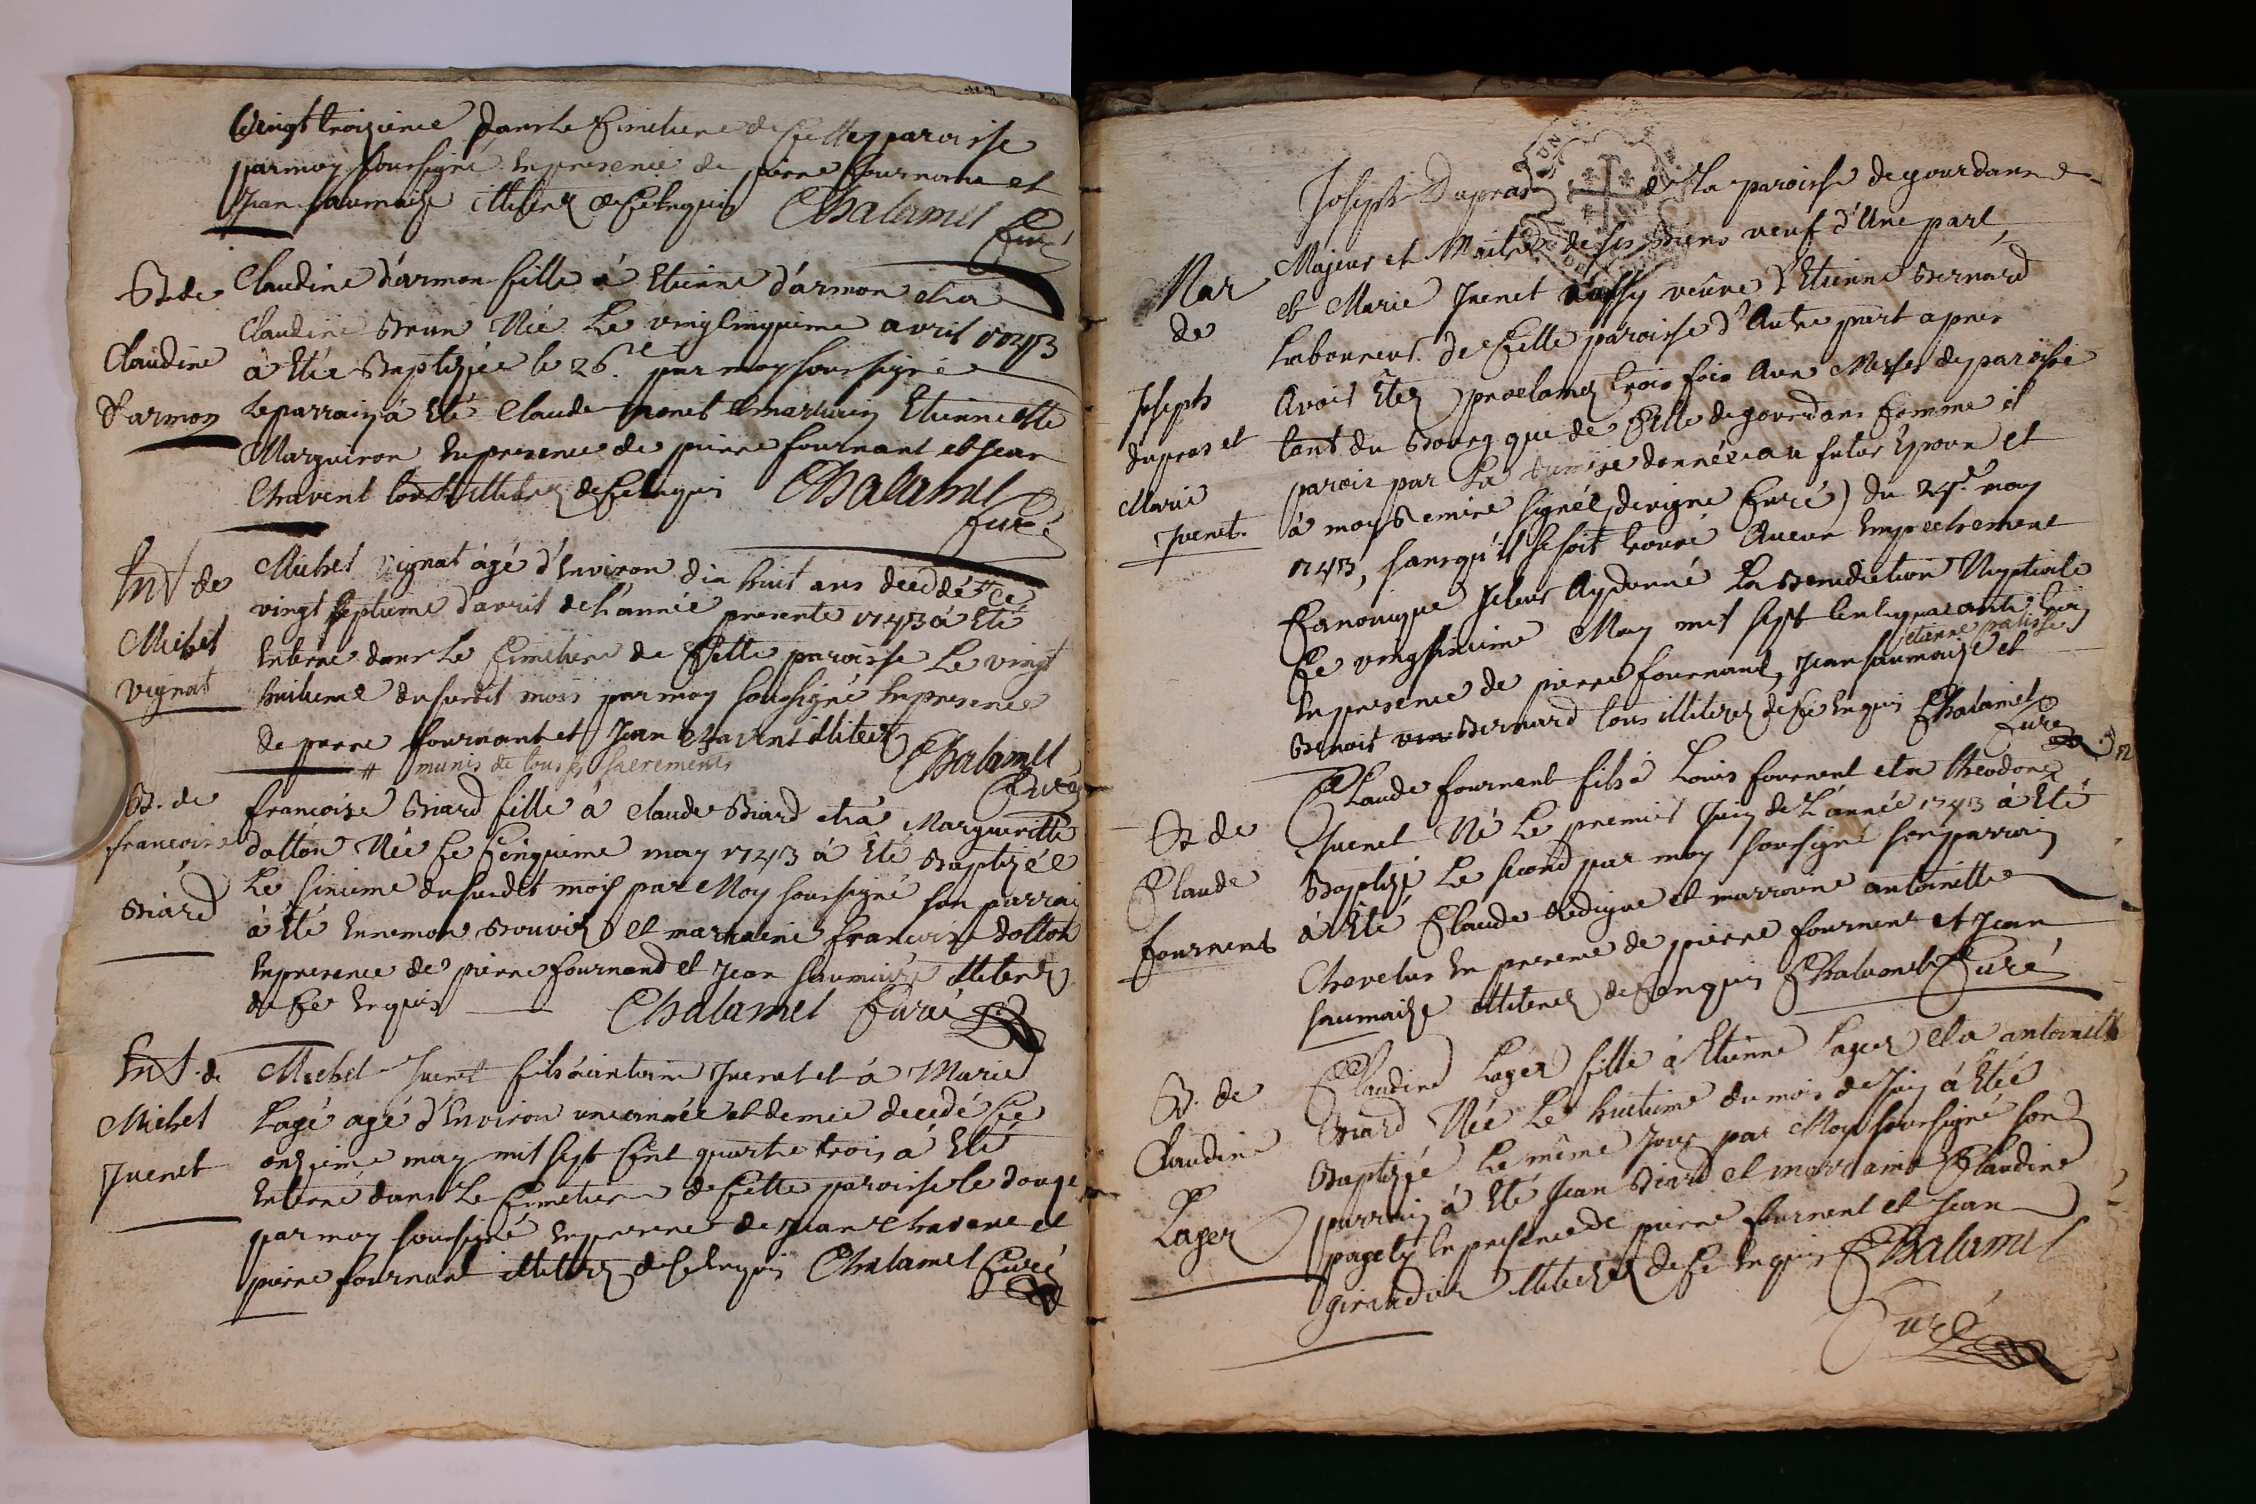 le vingt troizieme dans le Cimetiere de Cette paroisse
par moy soussigné En presence de pierre fournant et
Jean saumaize illiterez de Ce Enquis Chalamel
Curé
Bt. de
Claudine
D'armon
Claudine d'armon fille à Etienne d'armon et à
Claudine Brun Née Le vingtcinquieme avril 1743
à Etée Baptizée le 26.e par moy soussigné
Le parrain à Eté Claude monet et marrain Etiennette
Marguiron En presence de pierre fournant et Jean
Chavent tous illiterez de Ce Enquis Chalamel
Curé
Ent de
Michel
Vignat
Michel Vignat âgé d'Environ dix huit ans décédé # Ce
vingt septieme d'avril de l'année presente 1743 à Eté
Enterré dans Le Cimetiere de Cette paroisse Le vingt
huitieme dusurdit mois par moy soussigné En presence
de pierre fournant et Jean Chavent illiterez
# munis de tous ses sacrements Chalamel
Curé
Bt. de
francoise
Biard
francoise Biard fille à Claude Biard et à Margueritte
dotton Née Ce Cinquieme may 1743 à Eté Baptizée
Le sixieme dusurdit mois par Moy soussigné son parrai
à Eté Ennemon Bouvier et marraine francoise dotton
En presence de pierre fournand et Jean saumaize illiterez
de Ce Enquis Chalamel Curé
Ent. de
Michel
Juenet
Michel Juenet fils à antoine Juenet et à Marie
Lagé agé d'Environ une année et demie decedé Ce
onzieme may mil sept Cent quarante trois à Eté
Enterré dans Le Cimetiere de Cette paroisse le douze
par moy soussigné En presence de Jean Chavent et
pierre fournant illiterez de Ce Enquis Chalamel Curé
Mar
de
Joseph
dupras et
Marie
Juenet.
Joseph Dupras de La paroisse de gourdanne
Majeur et Maitre de ses Biens veuf d'Une part
et Marie Juenet aussy veuve d'Etienne Bernard
Laboureur de Cette paroisse d'Autre part apres
Avoir Etez proclamez trois fois Aux Messes de paroisse
tant du Bourg que de Celle de gourdans Comme il
parois par La remise donnée au futur Epoux et
à moy Remise signée devigne Curé) du 24e may
1743, sans qu'il se soit trouvé Aucun Empechement
Canonique Je leur Ay donné La Benediction Nuptiale
Ce vingtsixieme May mil sept Cent quarante trois
En presence de pierre fournant, Jean saumaize et
etienne palisse
Benoit Bernard tous illiterez de Ce Enquis Chalamel
Curé
Bt de
Claude
fournent
Claude fournent fils à Louis fournent et à theodore
Juenet Né Le premier Juin de L'année 1743 à Eté
Baptizé Le second par moy soussigné son parrain
à Eté Claude Redigue et marraine antoinette
Chevelus En presence de pierre fournent et Jean
saumaize illiterez de Ce Enquis Chalamel Curé
Bt. de
Claudine
Lager
Claudine Lager fille à Etienne Lager et à antoinette
Biard Née Le huitieme du mois de Juin à Etée
Baptizée Le même Jour par Moy soussigné son
parrain à Eté Jean Biard et marraine Claudine
paget En presence de pierre fournent et Jean
girardin illiterez de Ce Enquis Chalamel
Curé